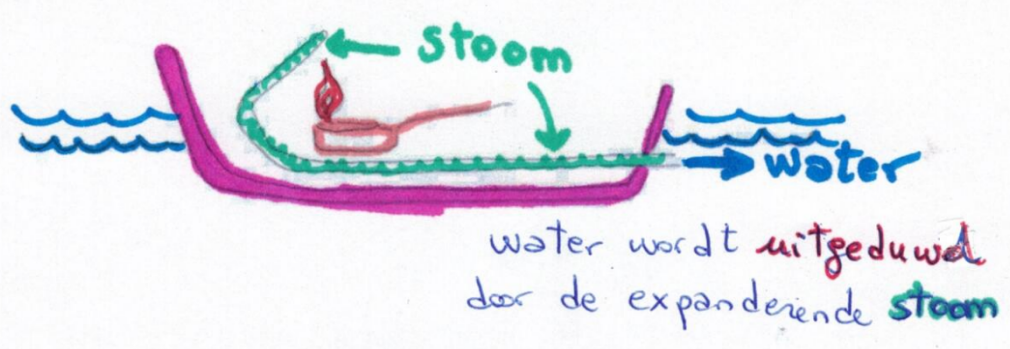 stoom
water
water wordt uitgeduwd
door de expanderende stoom